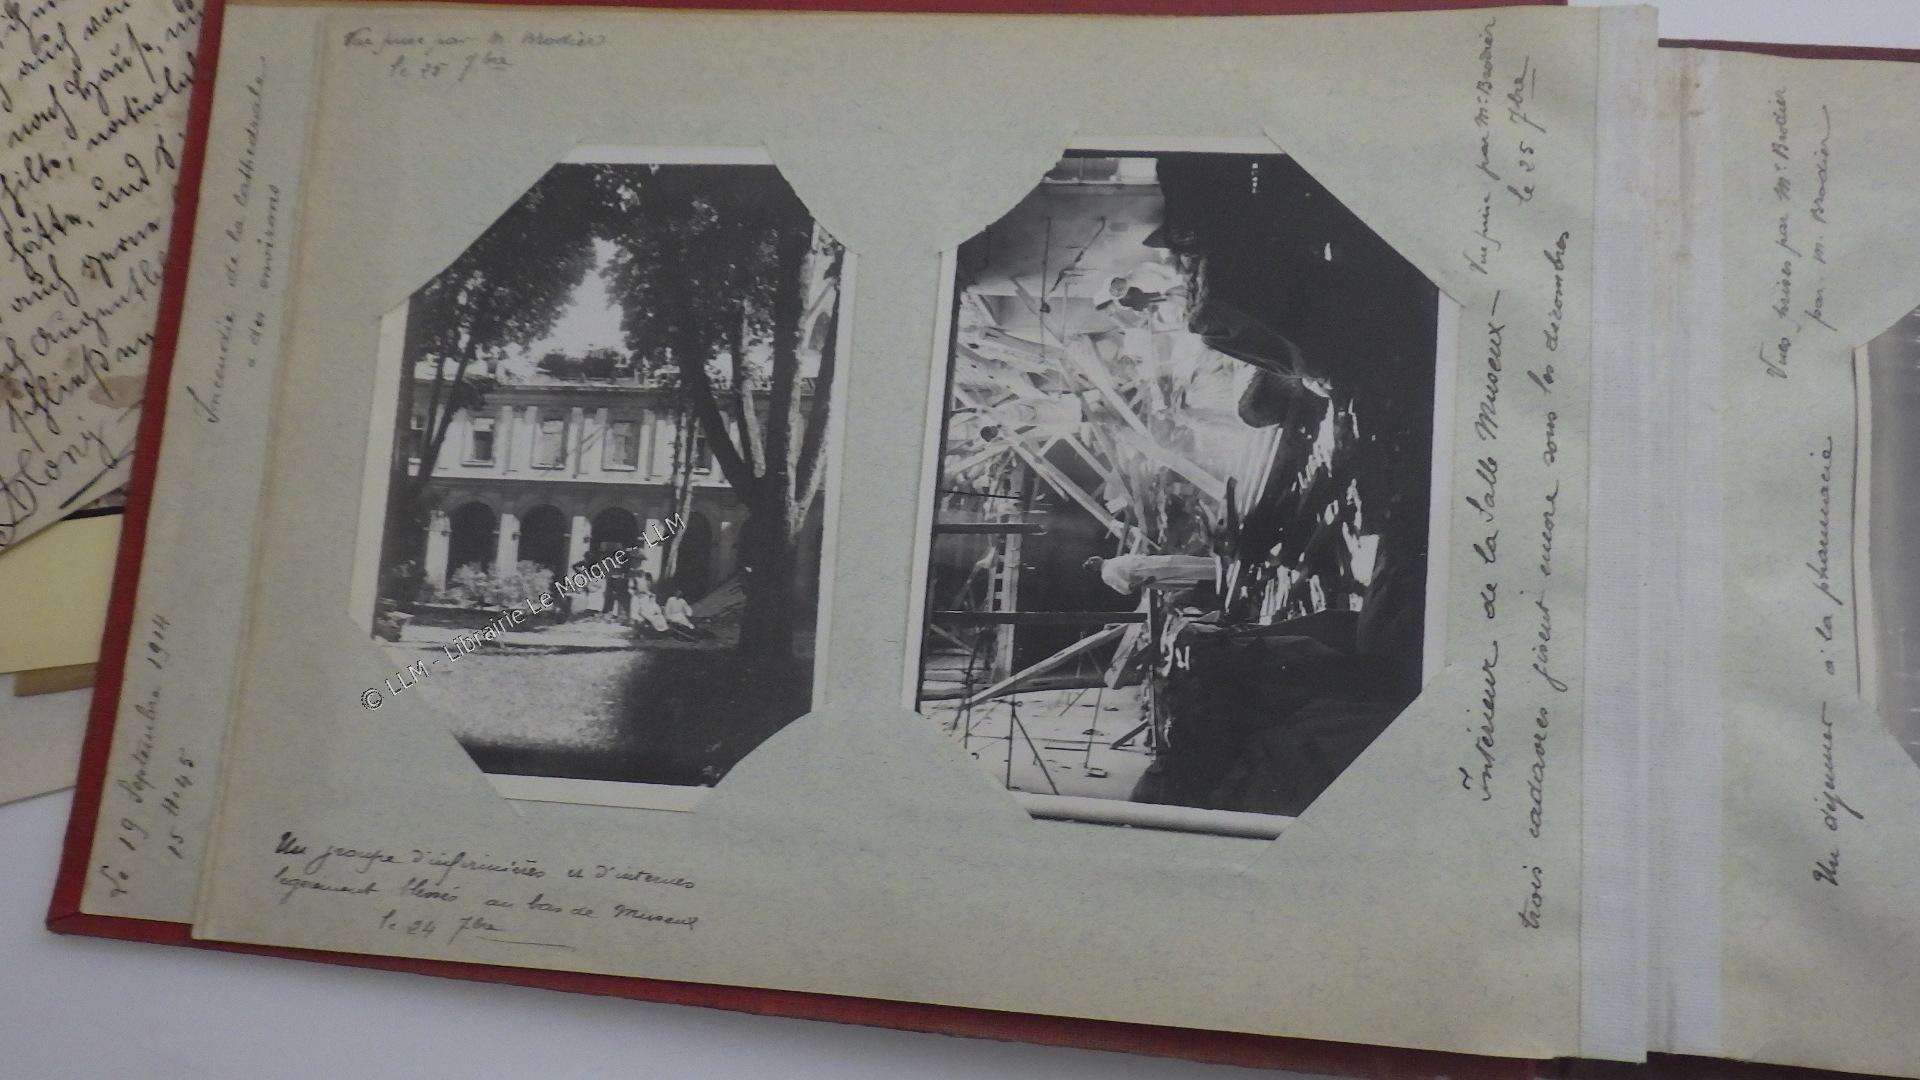 Vue prise par M. Brodier
le 25 7bre
Incendie de la Cathédrale
des environs
Le 19 Septembre 1914
15 H. 45
© LLM - Librairie Le Moigne - LLM
Un groupe d'infirmières et d'internes
legèrement blessés au bas de Museux
le 24 7bre
Intérieur de la Salle Museux — Vue prise par Mr Brodier
le 25 7bre
trois cadavres gisent encore sous les décombres
Vues prises par Mr Brodier
par M. Brodier
Un déjeuner à la pharmacie
auch von
nach
und
auch